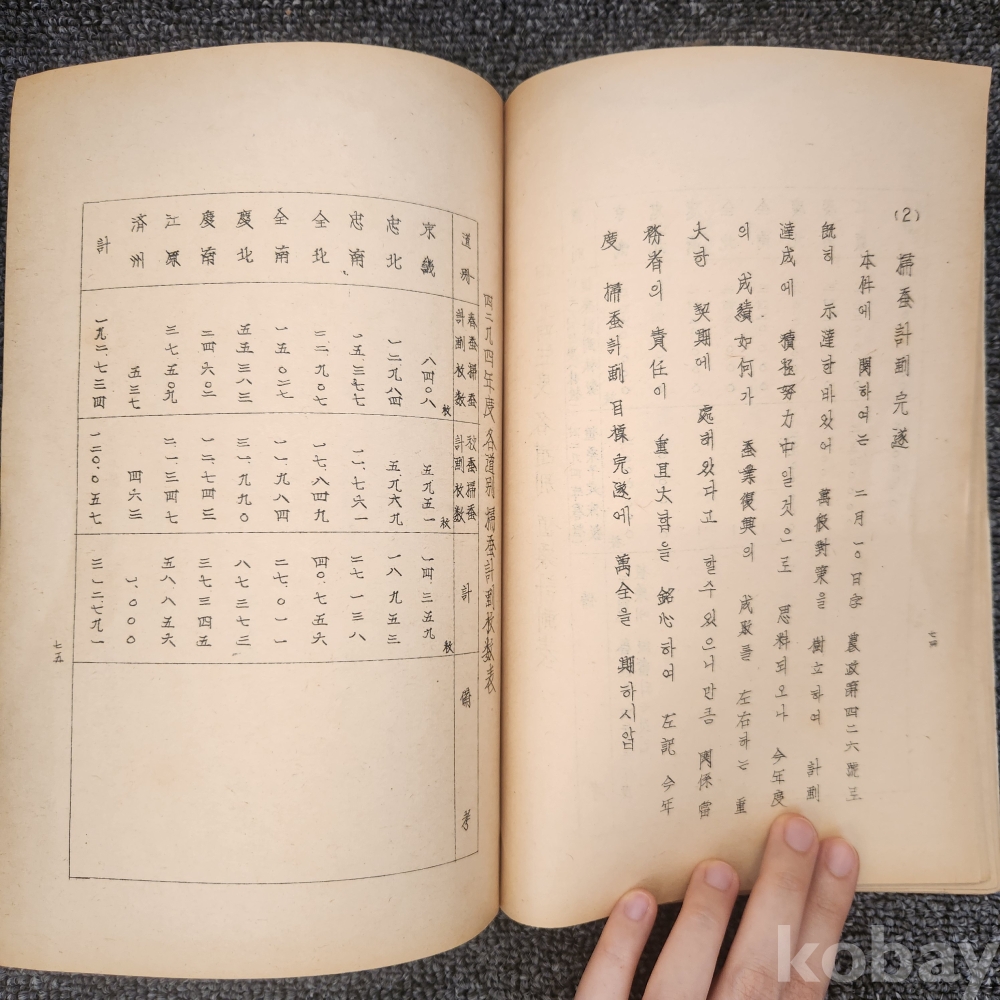 (2) 掃蚕計劃完遂
本件에 関하여는 二月一0日字 農政第四二六號로
既히 示達한바있어 萬般對策을 樹立하여 計劃
達成에 積極努力中일것으로 思料되오나 今年度
의 成績如何가 蚕業復興의 成敗를 左右하는 重
大한 契期에 處해있다고 할수있으니만큼 関係當
務者의 責任이 重且大함을 銘心하여 左記 今年
度 掃蚕計劃 目標完遂에 萬全을 期하시압
七四
四二九四年度 各道別 掃蚕計劃枚数表
道界 春蚕掃蚕計劃枚数 秋蚕掃蚕計劃枚数 計 備考
京畿 八四0八枚 五.九五一枚 一四.三五九枚
忠北 一二九八四 五.九六九 一八.九五三
忠南 一五.三七七 一一.七六一 二七.一三八
全北 二二.九0七 一七.八四九 四0.七五六
全南 一五.0二七 一一.九八四 二七.0一一
慶北 五五三八三 三一.九九0 八七三七三
慶南 二四六0二 一二.七四三 三七三四五
江原 三七五0九 二一.三四七 五八八五六
済州 五三七 四六三 一.000
計 一九二.七三四 一二0.0五七 三一二七九一
七五
kobay